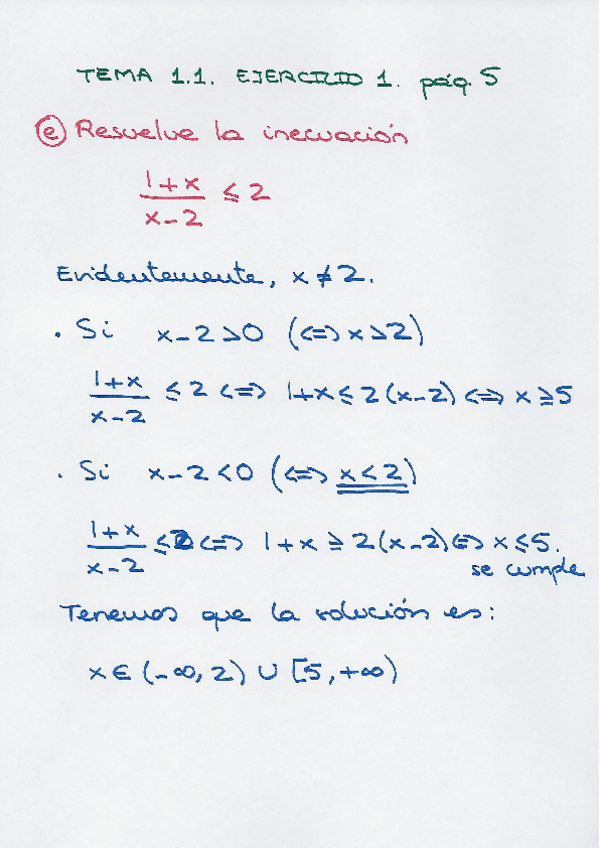 TEMA 1.1. EJERCICIO 1. pág. 5
(e) Resuelve la inecuación
(1+x)/(x-2) ≤ 2
Evidentemente, x ≠ 2.
. Si x-2>0 (<=> x>2)
(1+x)/(x-2) ≤ 2 <=> 1+x ≤ 2(x-2) <=> x ≥ 5
. Si x-2<0 (<=> x<2)
(1+x)/(x-2) ≤ 2 <=> 1+x ≥ 2(x-2) <=> x ≤ 5.
se cumple
Tenemos que la solución es:
x ∈ (-∞, 2) ∪ [5, +∞)